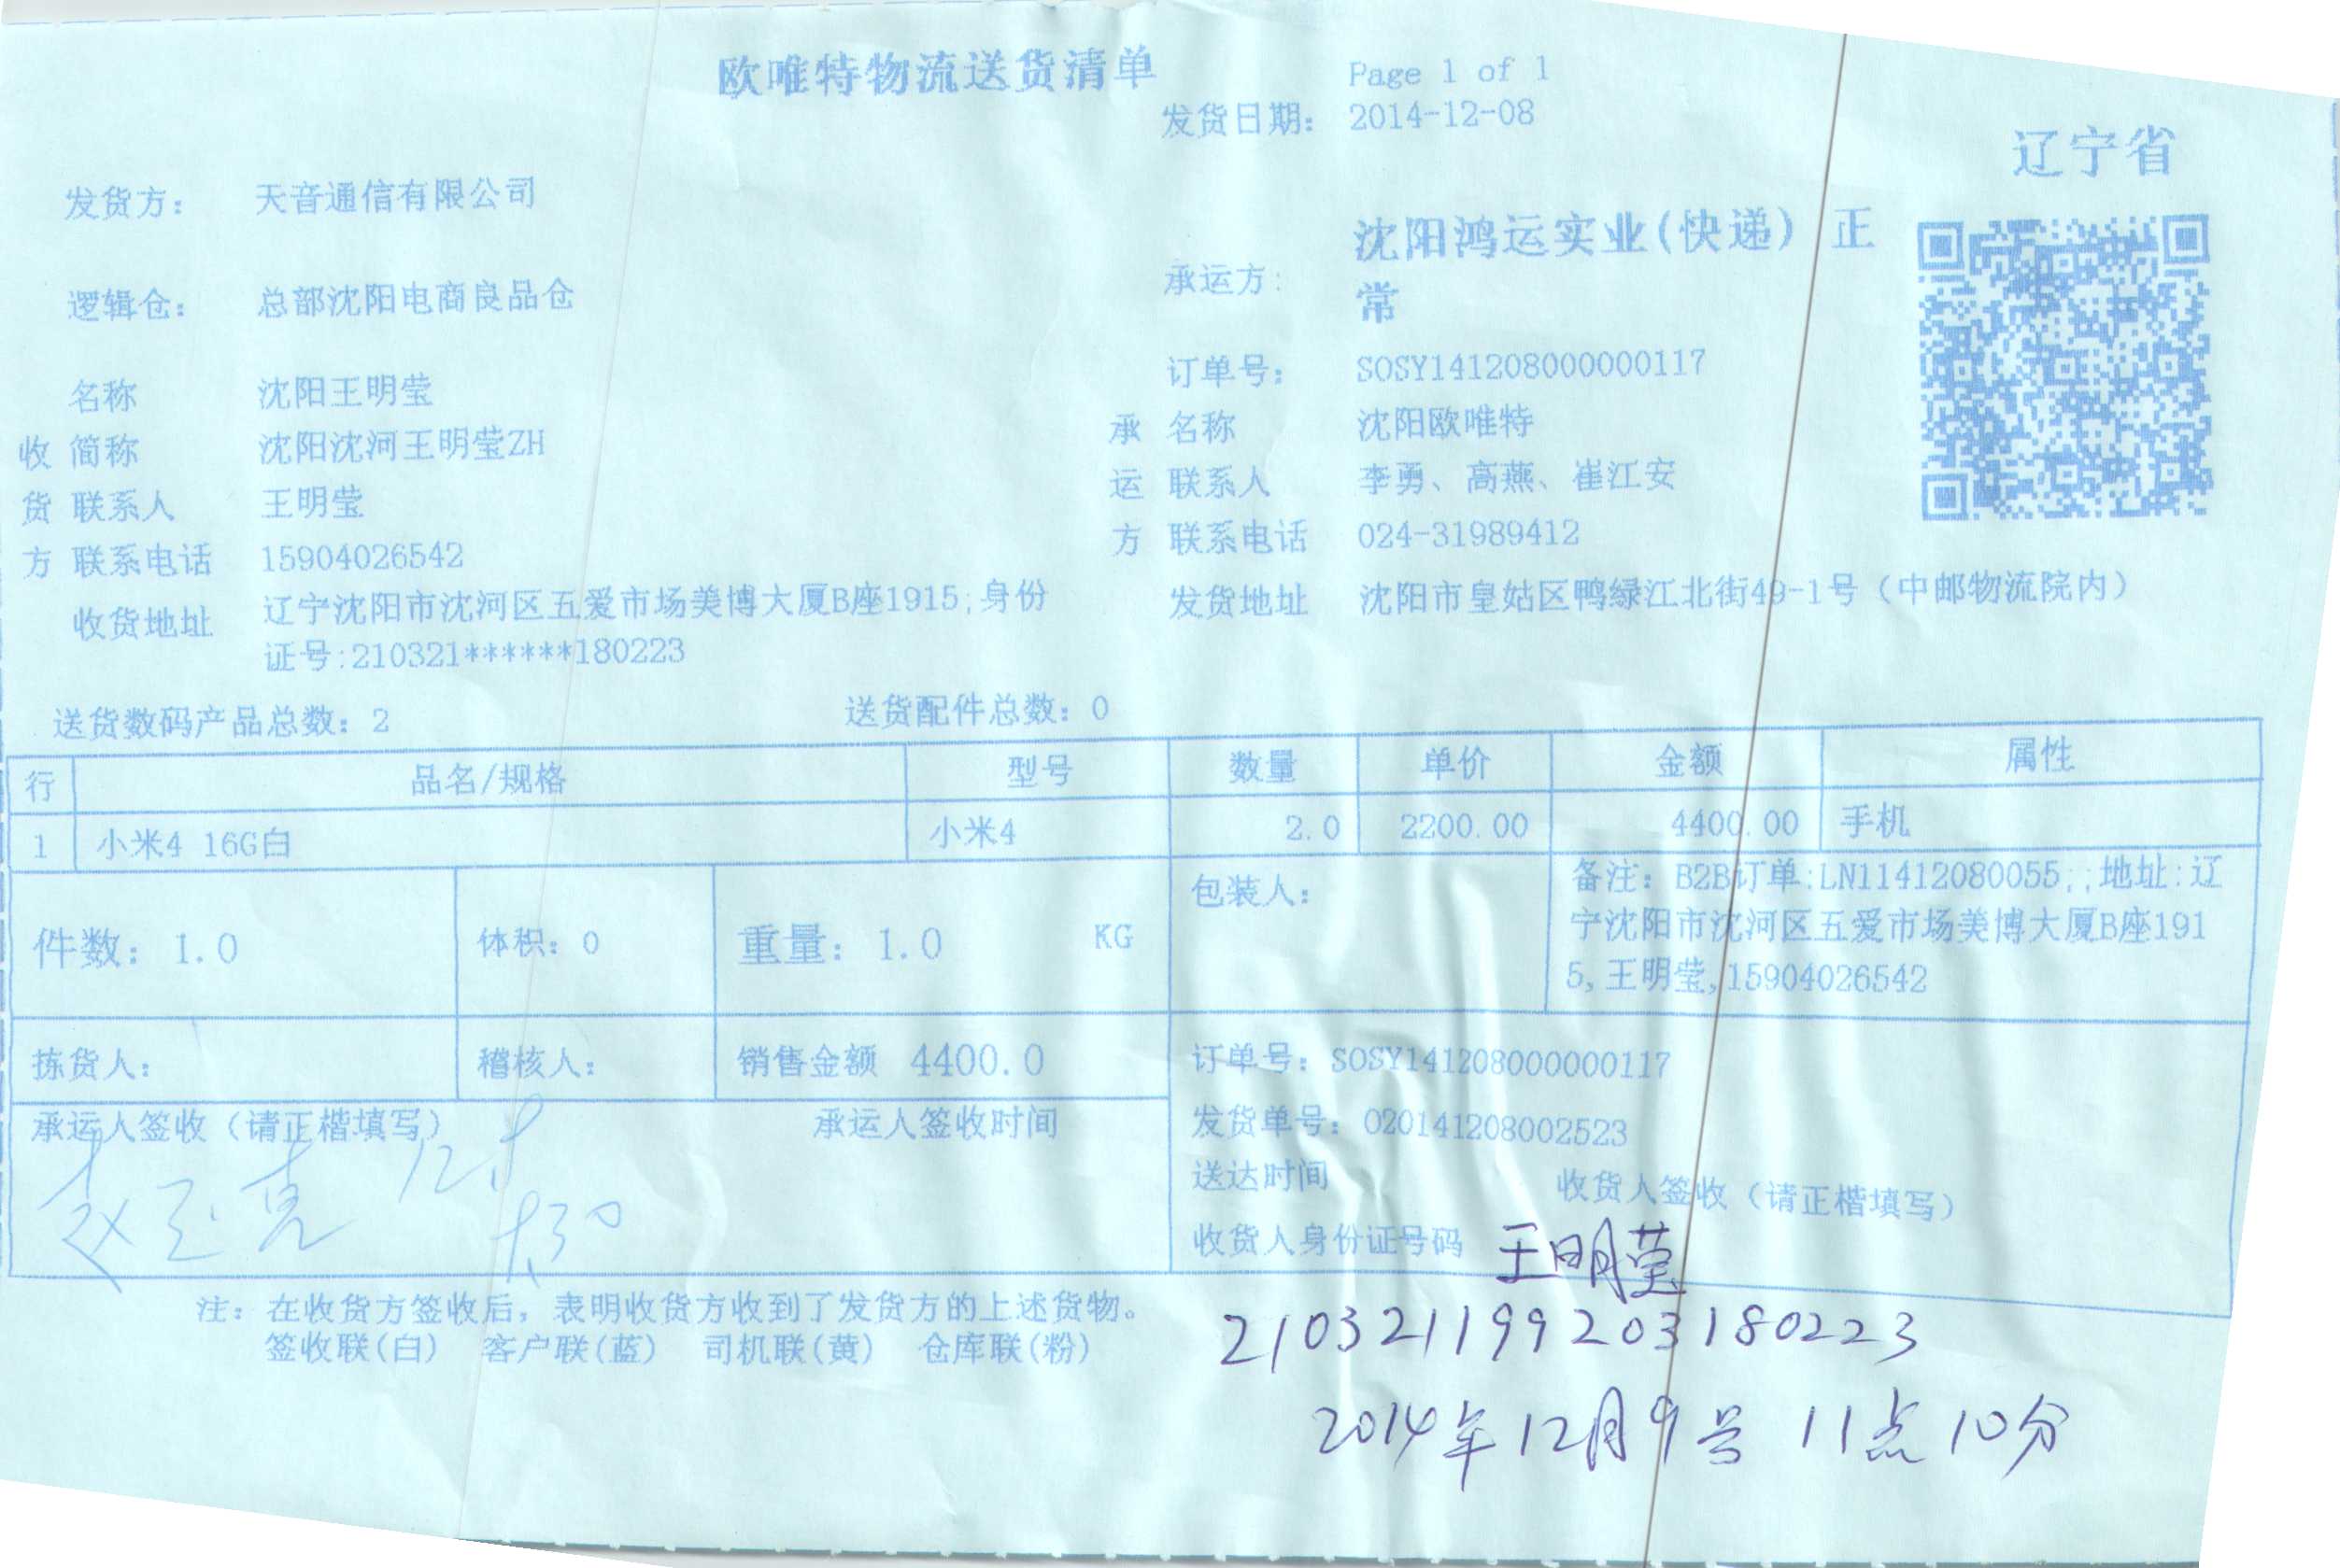 欧唯特物流送货清单
Page 1 of 1
发货日期： 2014-12-08
辽宁省
发货方： 天音通信有限公司
承运方： 沈阳鸿运实业(快递) 正
常
逻辑仓： 总部沈阳电商良品仓
订单号： SOSY141208000000117
名称 沈阳王明莹
承 名称 沈阳欧唯特
收 简称 沈阳沈河王明莹ZH
运 联系人 李勇、高燕、崔江安
货 联系人 王明莹
方 联系电话 024-31989412
方 联系电话 15904026542
发货地址 沈阳市皇姑区鸭绿江北街49-1号（中邮物流院内）
收货地址 辽宁沈阳市沈河区五爱市场美博大厦B座1915;身份
证号:210321******180223
送货数码产品总数：2 送货配件总数：0
行 品名/规格 型号 数量 单价 金额 属性
1 小米4 16G白 小米4 2.0 2200.00 4400.00 手机
件数：1.0 体积：0 重量：1.0 KG 包装人：
备注：B2B订单:LN11412080055;;地址:辽
宁沈阳市沈河区五爱市场美博大厦B座191
5,王明莹,15904026542
拣货人： 稽核人： 销售金额 4400.0
订单号：SOSY141208000000117
承运人签收（请正楷填写） 承运人签收时间
发货单号：020141208002523
送达时间 收货人签收（请正楷填写）
收货人身份证号码 王明莹
210321199203180223
2014年12月9号 11点10分
注：在收货方签收后，表明收货方收到了发货方的上述货物。
签收联(白) 客户联(蓝) 司机联(黄) 仓库联(粉)